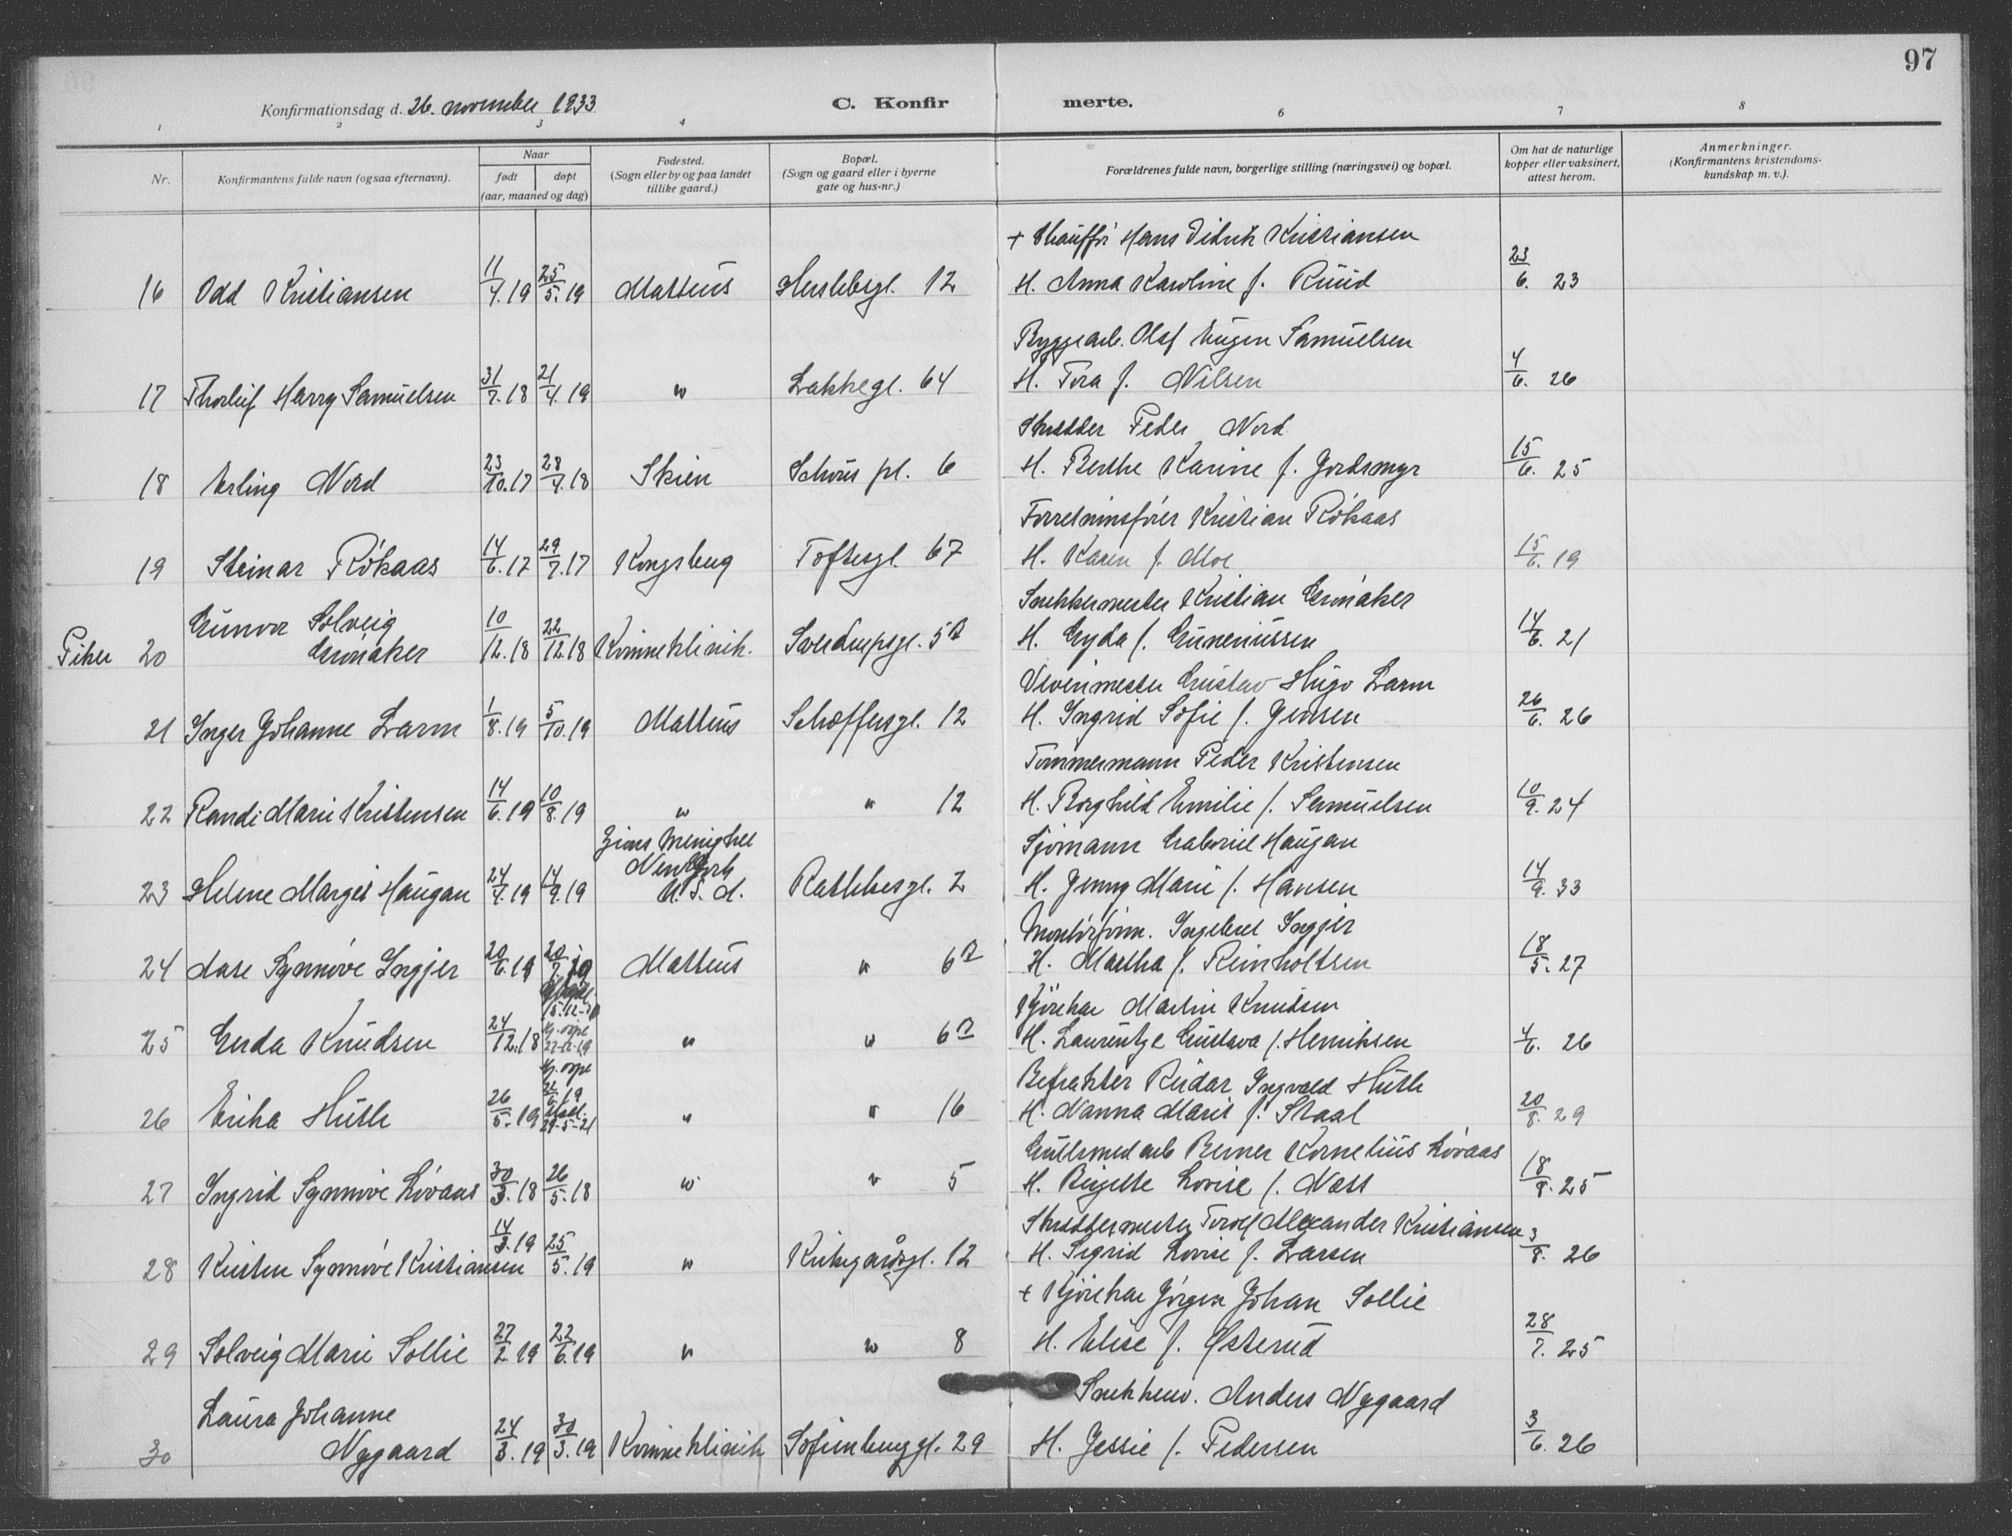 97
Konfirmationsdag d. 26. november 1933
C. Konfirmerte.
1 2 3 4 6 7 8
Nr.
Konfirmantens fulde navn (ogsaa efternavn).
Naar
født
døpt
(aar, maaned og dag)
Fødested.
(Sogn eller by og paa landet
tillike gaard.)
Bopæl.
(Sogn og gaard eller i byerne
gate og hus-nr.)
Forældrenes fulde navn, borgerlige stilling (næringsvei) og bopæl.
Om hat de naturlige
kopper eller vaksinert,
attest herom.
Anmerkninger.
(Konfirmantens kristendoms-
kundskap m. v.).
+ Chauffør Hans Didrik Kristiansen
16 Odd Kristiansen 11/4.19 25/5.19 Matteus Herslebsgt. 12 H. Anna Karoline f. Ruud 23/6. 23
Byggearb. Olaf Eugen Samuelsen
17 Thorleif Harry Samuelsen 31/7.18 21/4.19 " Lakkegt. 64 H. Tora f. Nilsen 4/6. 26
Skrædder Peder Nord
18 Erling Nord 23/10.17 28/4.18 Skien Schous pl. 6 H. Berthe Karine f. Jordsmyr 15/6. 25
Forretningsfører Kristian Rôkaas
19 Steinar Rôkaas 14/6.17 29/7.17 Kongsberg Toftesgt. 67 H. Karen f. Moe 15/6. 19
Snekkermester Kristian Grønaker
Piker 20 Gunvor Solveig
Grønaker 10/12.18 22/12.18 Kvinneklinik. Sverdrupsgt. 5B H. Gyda f. Guneriussen 14/6. 21
Vevermester Gustav Hugo Larm
21 Inger Johanne Larm 1/8.19 5/10.19 Matteus Schæffersgt. 12 H. Ingrid Sofie f. Jensen 26/6. 26
Tømmermann Peder Kristensen
22 Randi Marie Kristensen 14/6.19 10/8.19 " " 12 H. Borghild Emilie f. Samuelsen 10/9. 24
Zions Menighet
New York
U.S.A.
Sjømann Gabriel Haugan
23 Helene Margit Haugan 24/7.19 14/9.19 Rathkesgt. 2 H. Jenny Marie f. Hansen 14/9. 33
Montørform. Ingebret Ingjer
24 Aase Synnøve Ingjer 20/6.19 20/7.19 Matteus " 6B H. Martha f. Reinholtsen 18/5. 27
Kjørekar Martin Knudsen
25 Gerda Knudsen 24/12.18 " " 6B H. Laurentze Gustava f. Henriksen 4/6. 26
Befrakter Reidar Ingvald Huth
26 Erika Huth 26/5.19 " " 16 H. Nanna Marie f. Staal 20/8. 29
Gullsmedarb Berner Kornelius Lôvaas
27 Ingrid Synnøve Lôvaas 30/3.18 26/5.18 " " 5 H. Birgitte Lovise f. Næss 18/8. 25
Skreddermester Torolf Alexander Kristiansen
28 Kirsten Synnøve Kristiansen 14/3.19 25/5.19 " Kirkegårdsgt. 12 H. Sigrid Lovise f. Larsen 3/8. 26
+ Kjørekar Jørgen Johan Sollie
29 Solveig Marie Sollie 27/2.19 22/6.19 " " 8 H. Elise f. Østerud 28/7. 25
Snekkersv. Anders Nygaard
30 Laura Johanne
Nygaard 24/3.19 30/3.19 Kvinneklinik Sofienberggt. 29 H. Jessie f. Pedersen 3/6. 26